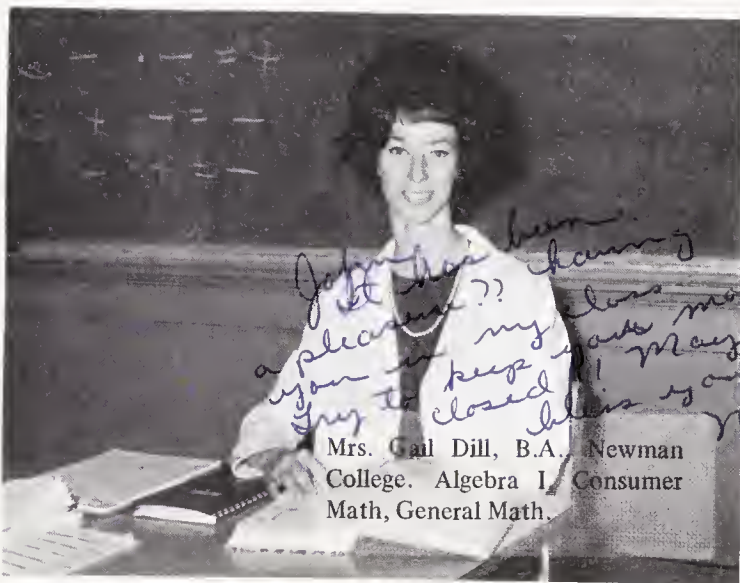 John,
It has been
a pleasure?? having
you in my class
Try to keep your mo
closed!! May
bless you
Mrs. Gail Dill, B.A., Newman
College. Algebra I, Consumer
Math, General Math.